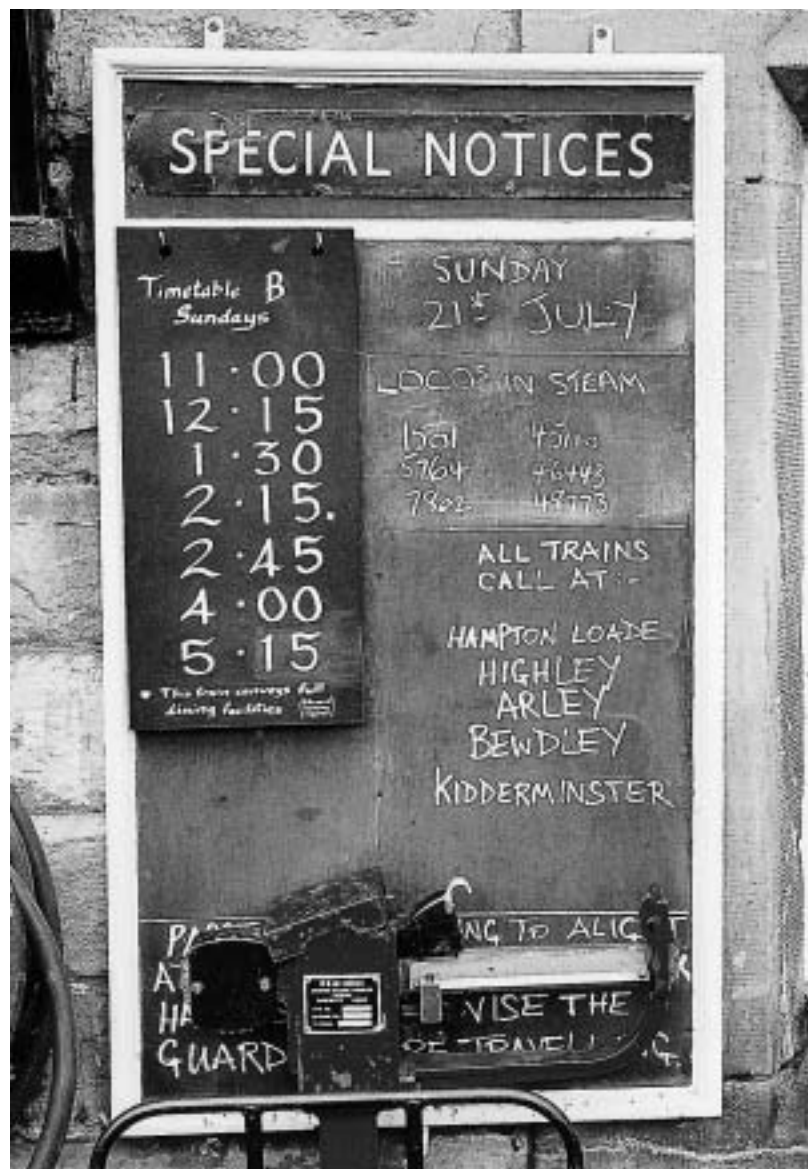 SPECIAL NOTICES
Timetable B
Sundays
11·00
12·15
1·30
2·15.
2·45
4·00
5·15
This train conveys full
dining facilities
SUNDAY
21st JULY
LOCOS IN STEAM
1501 45110
5764 46443
7802 48773
ALL TRAINS
CALL AT:-
HAMPTON LOADE
HIGHLEY
ARLEY
BEWDLEY
KIDDERMINSTER
TO
VISE THE
GUARD